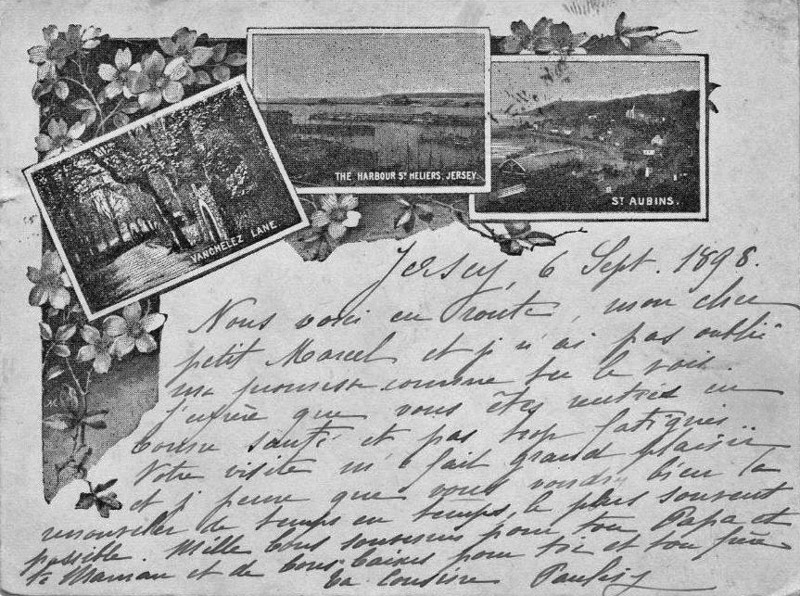 THE HARBOUR ST HELIERS, JERSEY
ST AUBINS.
VANCHELEZ LANE.
Jersey, 6 Sept. 1898.
Nous voici en route, mon cher
petit Marcel et j n'ai pas oublié
ma promesse comme tu le vois.
J'espère que vous êtes rentrés en
bonne santé et pas trop fatigués.
Votre visite m'a fait grand plaisir
et j pense que vous voudrez bien la
renouveler de temps en temps, le plus souvent
possible. Mille bons souvenirs pour ton Papa et
ta Maman et de bons baisers pour toi et ton frère
ta cousine